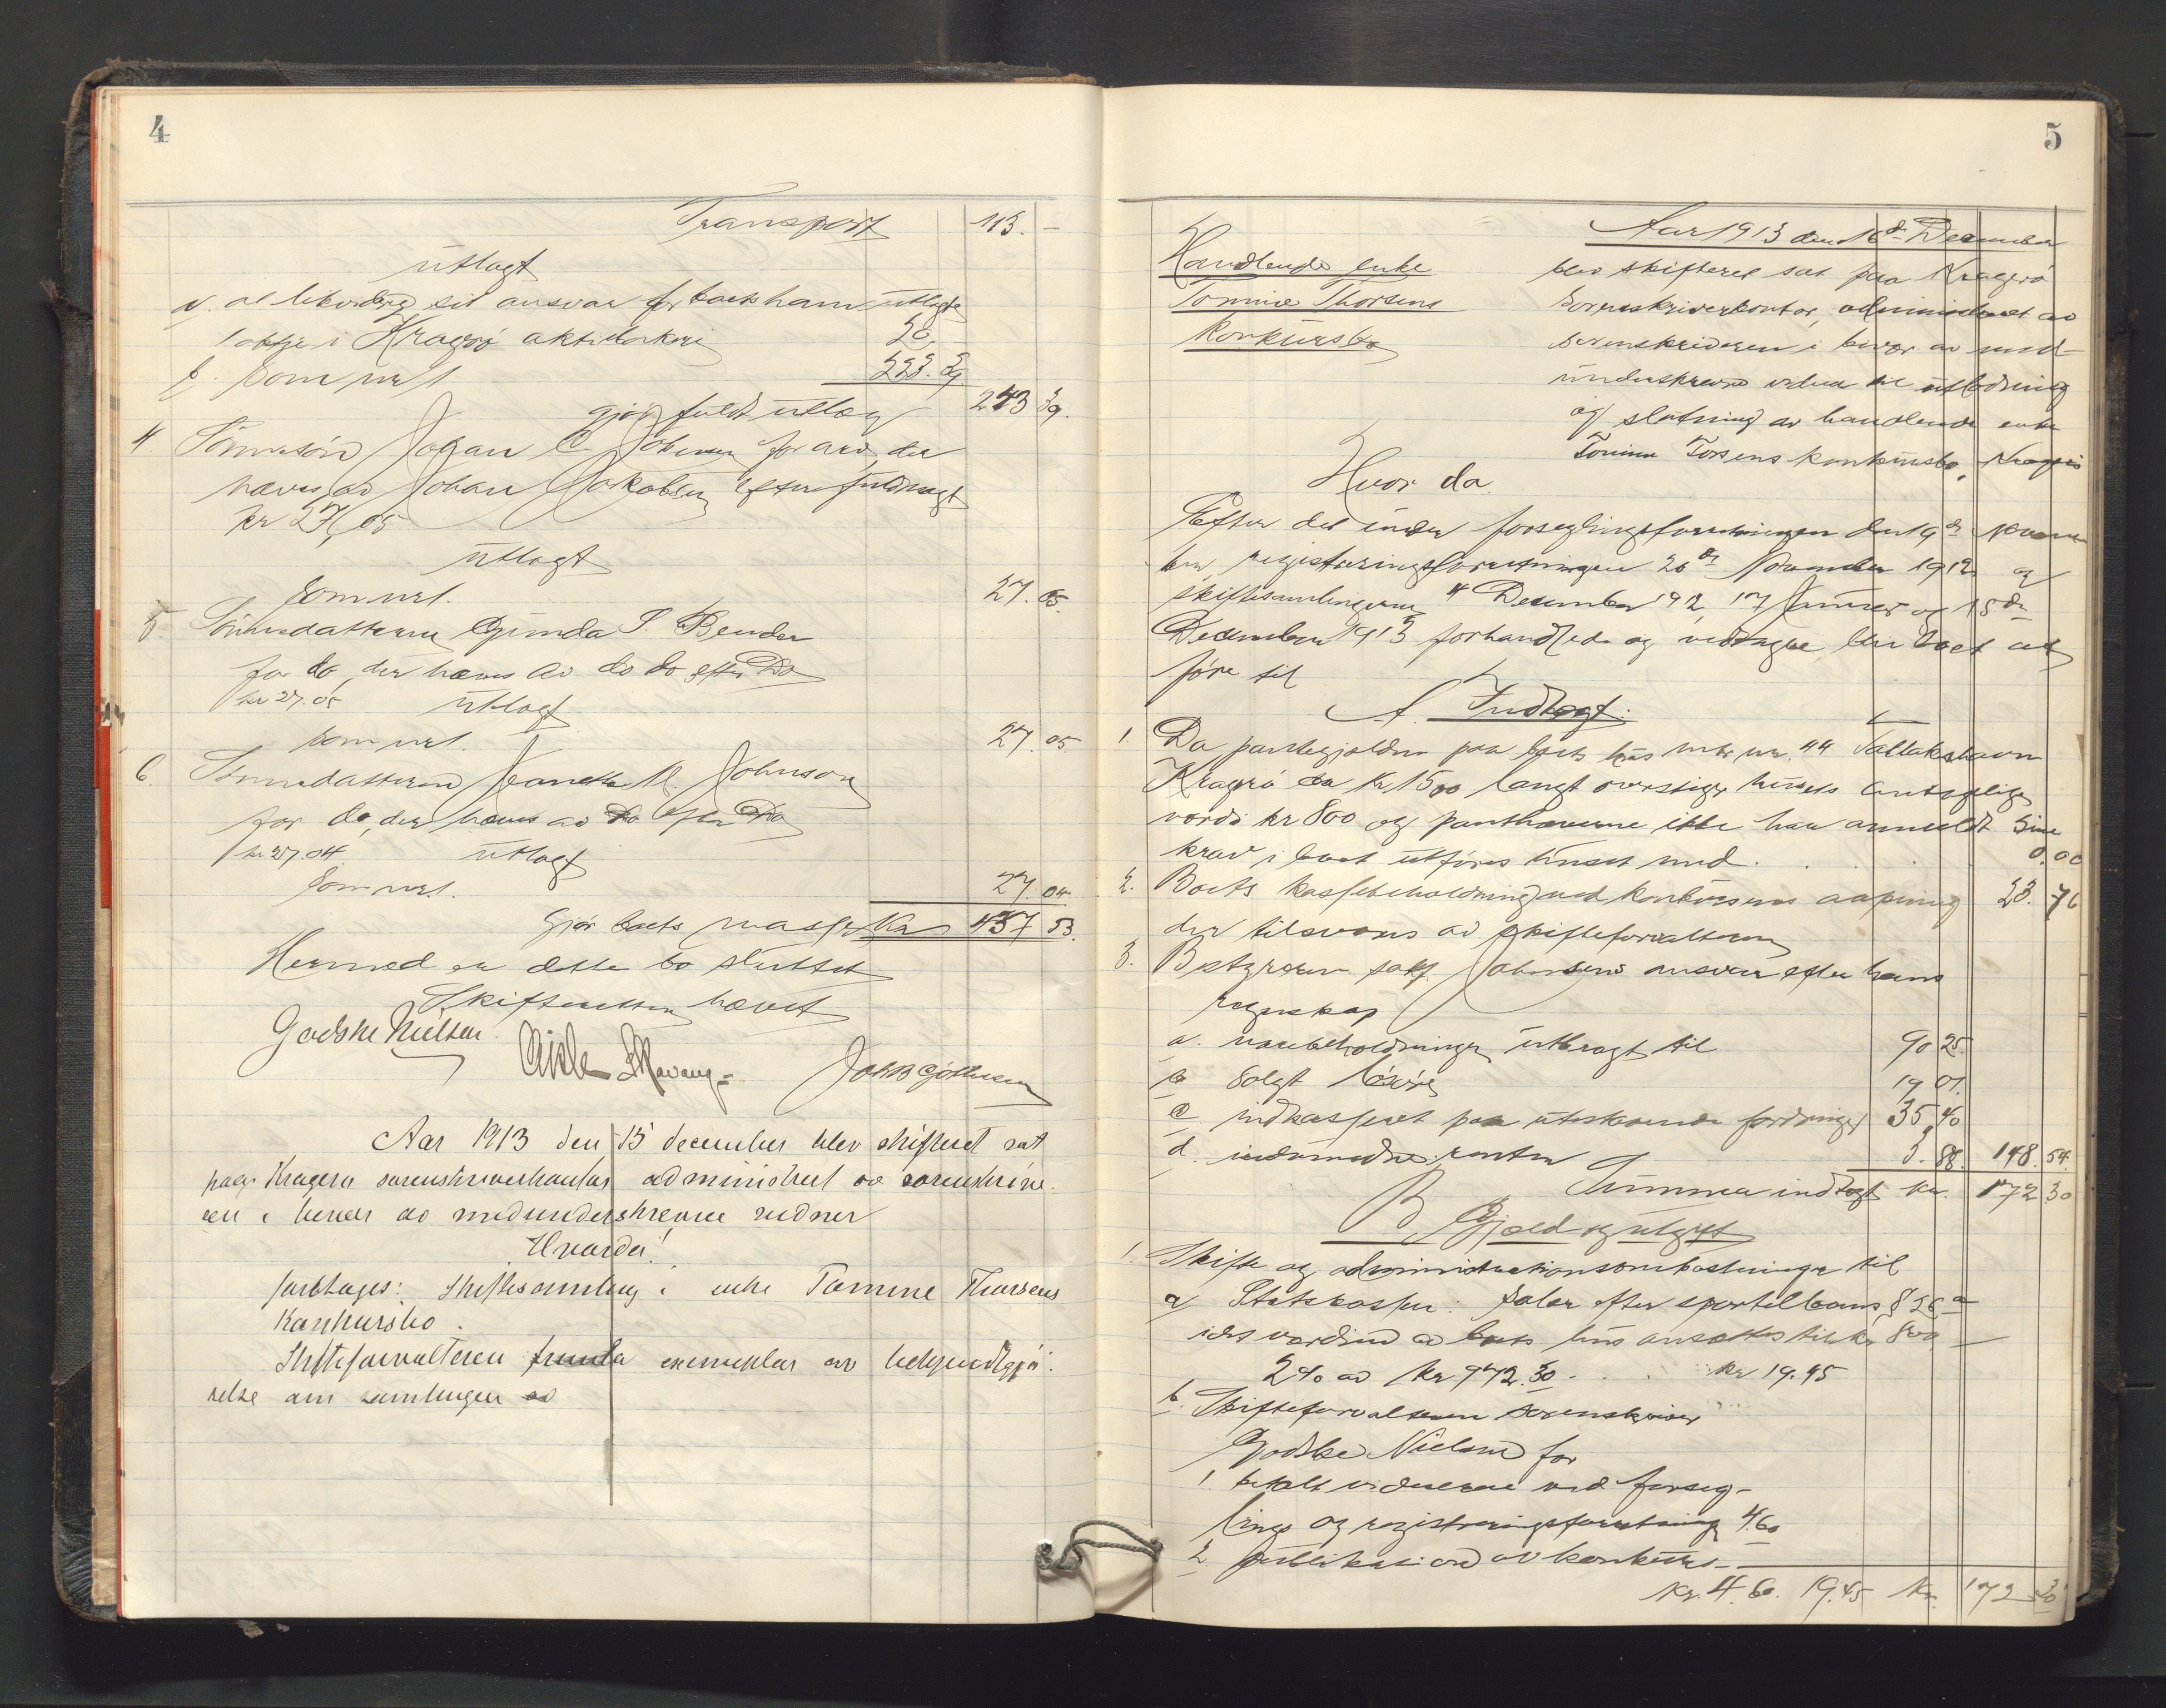 4
Transport 113. –
Utlagt
a. at likvidere sit ansvar for boet ham utlagte
1 aktje i Kragerø aktietrykkeri 20,
b. som nr 1 223. 39
gjør fuldt utlæg 243 39.
4. Sønnesøn Johan C. Johnsen for arv, der
hæves av Johan Jakobsen efter fuldmagt
kr 27,05
Utlagt
som nr 1. 27. 05.
5 Sønnedatteren Gunda S. Bender
for do, der hæves av do do efter Do
kr 27.05 Utlagt
som nr 1. 27. 05.
6. Sønnedatteren Jeanette M. Johnson
for do, der hæves av Do efter Do
kr 27.04 Utlagt
som nr 1. 27. 04
Gjør boets masse Kr 437 53.
Hermed er dette bo sluttet
Skifteretten hævet
Godske Nielsen
Aar 1913 den 15 december blev skifteret sat
paa Kragerø sorenskriverkontor administrert av sorenskrive-
ren i bivær av medunderskrevne vidner
Hvorda!
foretages: Skiftesamling i enke Tomine Thorsens
Konkursbo.
Skifteforvalteren fremla exemplar av bekjendtgjø-
relse om samlingen av
5
Aar 1913 den 16de December
Handlende enke
Tomine Thorsens
Konkursbo
blev skifteret sat paa Kragerø
Sorenskriverkontor, administreret av
sorenskriveren i bivær av med-
underskrevne vidner til utlodning
og slutning av handlende enke
Tomine Torsens konkursbo, Kragerø
Hvor da.
Efter det under forseglingsforretningen den 19de Novem-
ber, registreringsforretningen 20de November 1912 og
skiftesamlingerne 4 December 1912, 17 Januar og 15de
December 1913 forhandlede og vedtagne blir boet at
føre til
A. Indtægt:
1. Da pantegjælden paa boets hus matr. nr. 44 Tallakshavn
Kragerø ca Kr. 1500 langt overstiger husets antagelige
værdi kr 800 og panthaverne ikke har anmeldt sine
krav i boet utføres huset med . . . 0.00
2. Boets kassebeholdning ved konkursens aapning 23. 76
der tilsvares av skifteforvalteren
3. Bestyreren sakf. Johnsens ansvar efter hans
regnskap
a. varebeholdningen utbragt til 90 25
b solgt løsøre 19 01.
c indkasseret paa utestaaende fordringer 35,40
d. indvundne renter 3. 88. 148. 54
Summa indtægt kr. 172 30
B Gjæld og utgift
1. Skifte og administrationsomkostninger til
a Statskassen: Salær efter sportelloven § 26 a
idet værdien av boets hus ansættes til kr 800 –
2% av kr 972.30 . . . kr 19.45
b. Skifteforvalteren sorenskriver
Godske Nielsen for
1. betalt vidnerne ved forseg-
lings og registreringsforretning 4.60
2. publikation av konkurs-
Kr. 4.60. 19.45 Kr. 172 30